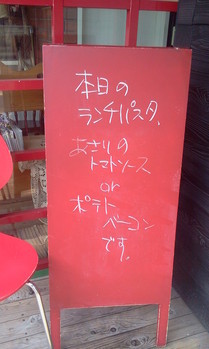 本日の
ランチパスタ、
あさりの
トマトソース
or
ポテト
ベーコン
です。